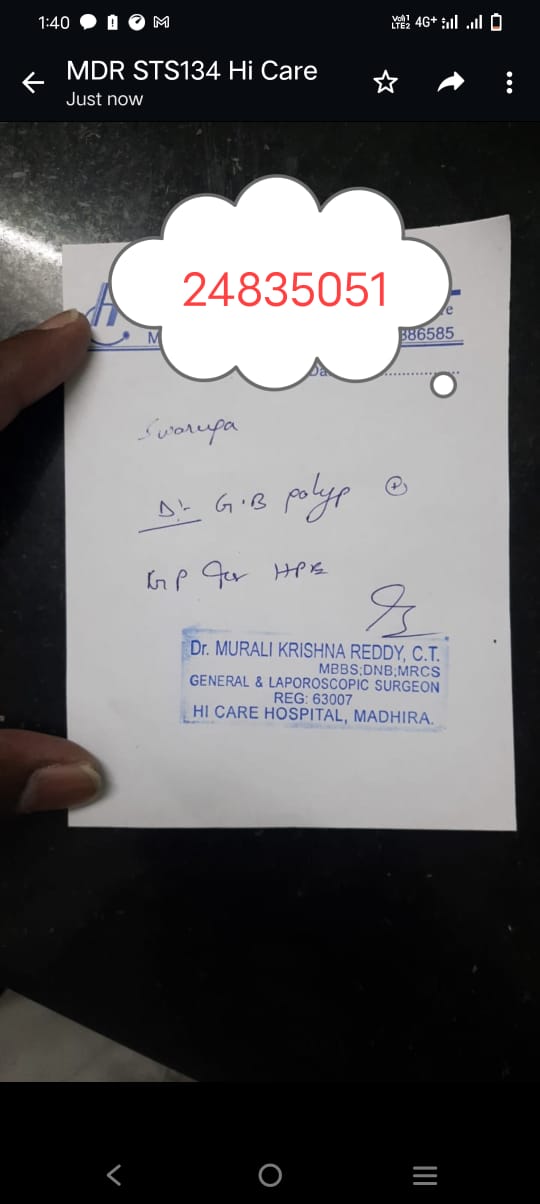 1:40
Vo)) LTE2 4G+
MDR STS134 Hi Care
Just now
24835051
H
re
M
886585
Da
Swarupa
D:- G.B polyp
for HPE
Dr. MURALI KRISHNA REDDY, C.T.
MBBS;DNB;MRCS
GENERAL & LAPOROSCOPIC SURGEON
REG: 63007
HI CARE HOSPITAL, MADHIRA.